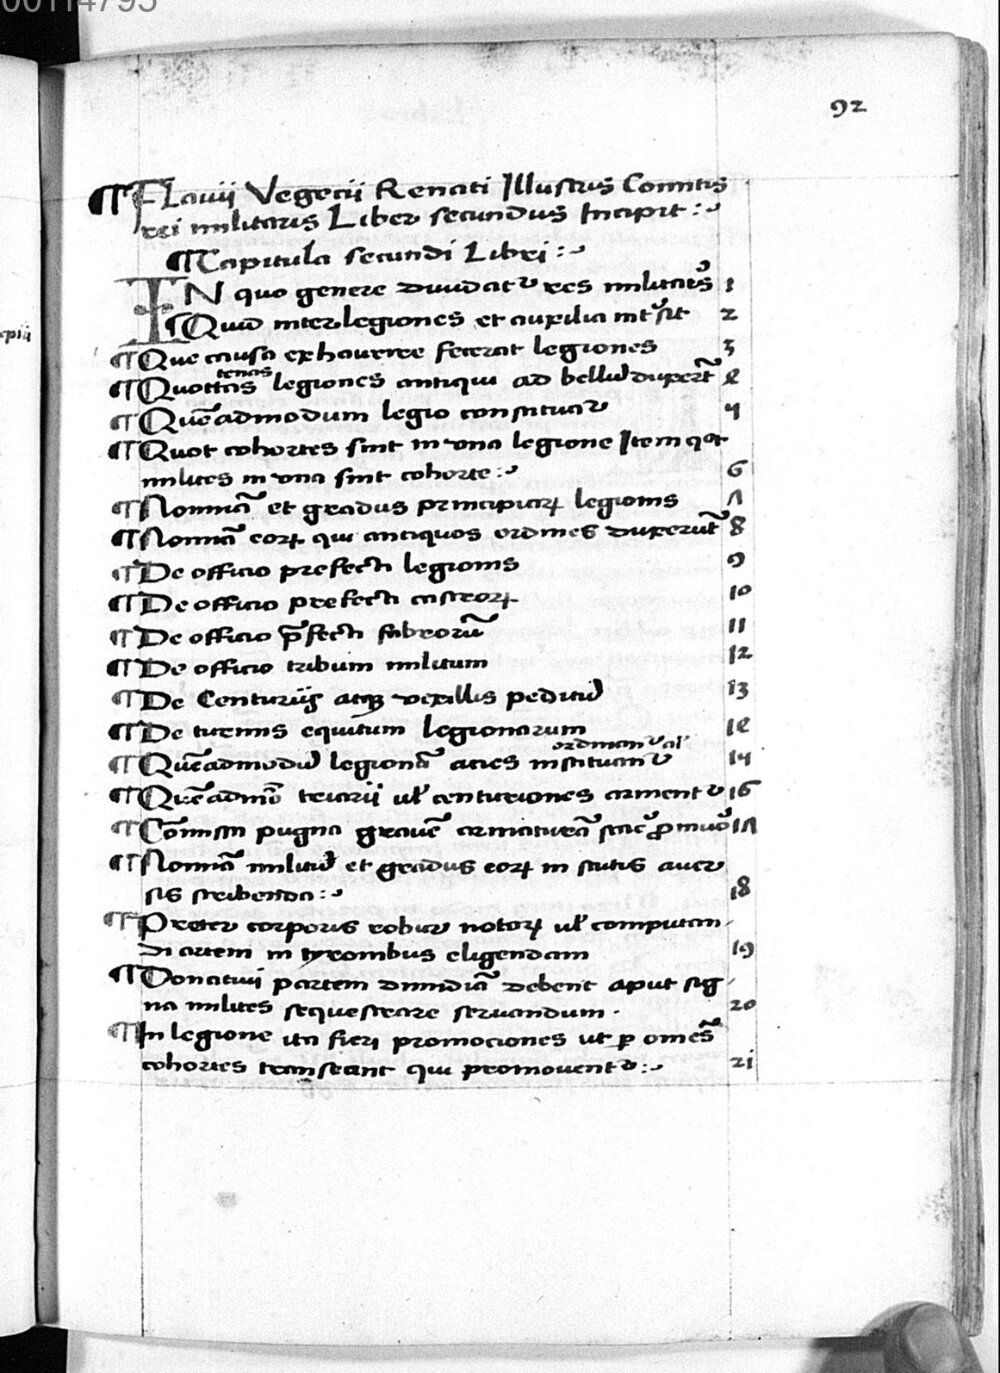 00114795
92
¶ Flauij Vegecij Renati Illustris Comitis
rei militaris Liber secundus Incipit :~
¶ Capitula secundi Libri :~
IN quo genere diuidatᷣ res militaris 1
¶ Quid inter legiones et auxilia intᷣsit 2
¶ Que causa exhaurire fecerat legiones 3
tenas
¶ Quottas legiones antiqui ad bellū duxerūt 4
¶ Quēadmodum legio constituatᷣ 5
¶ Quot cohortes sint in vna legione Item qͦt
milites in vna sint cohorte :~ 6
¶ Nomīa et gradus principiaꝝ legionis 7
¶ Nomīa eoꝝ qui antiquos ordines duxerūt 8
¶ De officio prefecti legionis 9
¶ De officio prefecti castroꝝ 10
¶ De officio p̄fecti fabrorū 11
¶ De officio tribuni militum 12
¶ De Centurijs atqꝫ vexillis peditū 13
¶ De turmis equitum legionarum 14
ordinanᷣ al'
¶ Quēadmodū legionū acies instituantᷣ 15
¶ Quēadmō triarij ul' centuriones armentᷣ 16
¶ Cōmissa pugna grauē armaturā stare ꝓ muro 17
¶ Nomīa militū et gradus eoꝝ in scutis auer
sis scribenda :~ 18
¶ Preter corporis robur notoꝝ ul' computan
di artem in tyronibus eligendam 19
¶ Donatiui partem dimidiā debent aput sig
na milites sequestrare seruandum . 20
¶ In legione ita fieri promociones ut ꝑ omēs
cohortes transeant qui promouentᷣ :~ 21